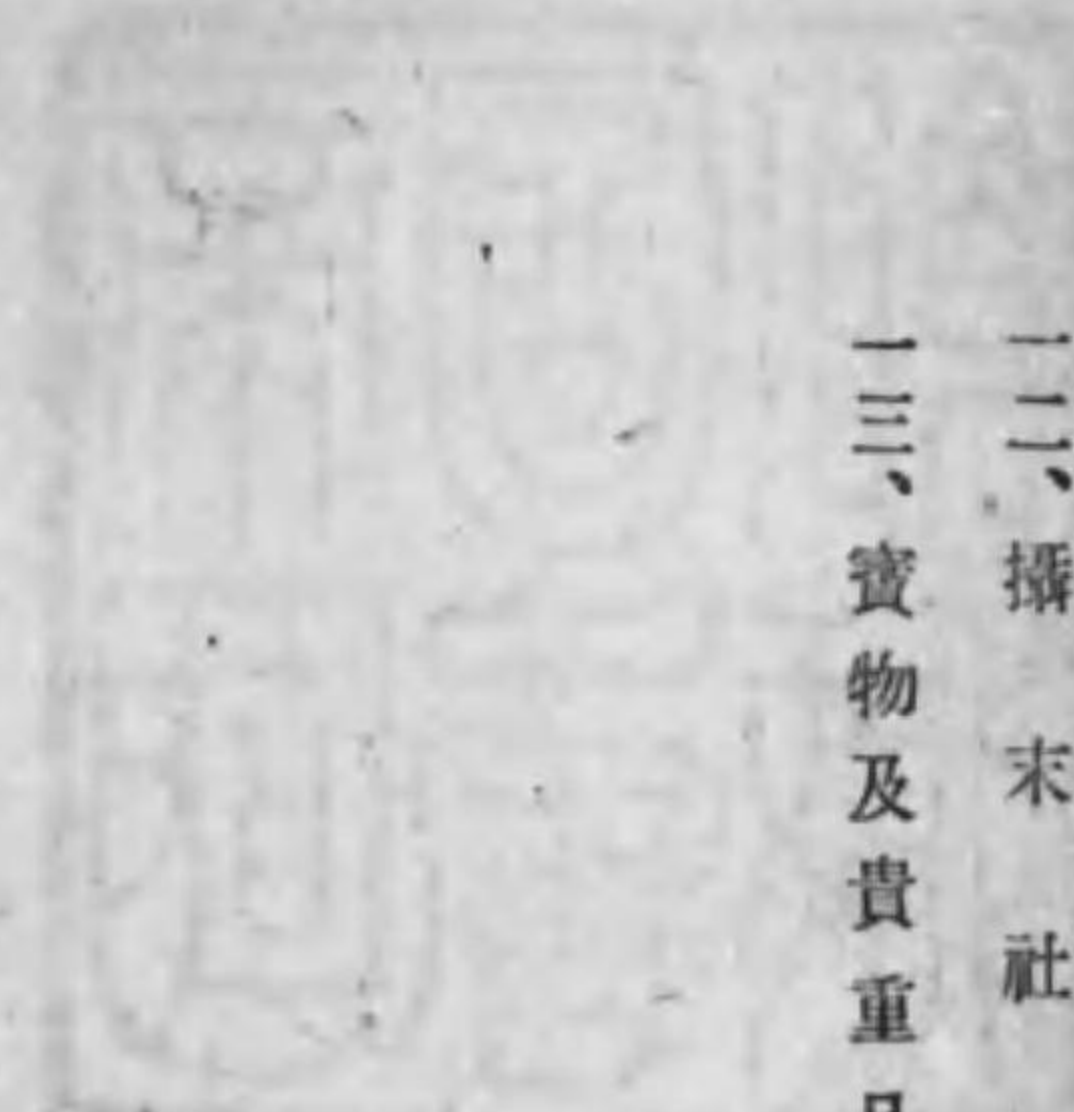 一二、攝末社
一三、寳物及貴重